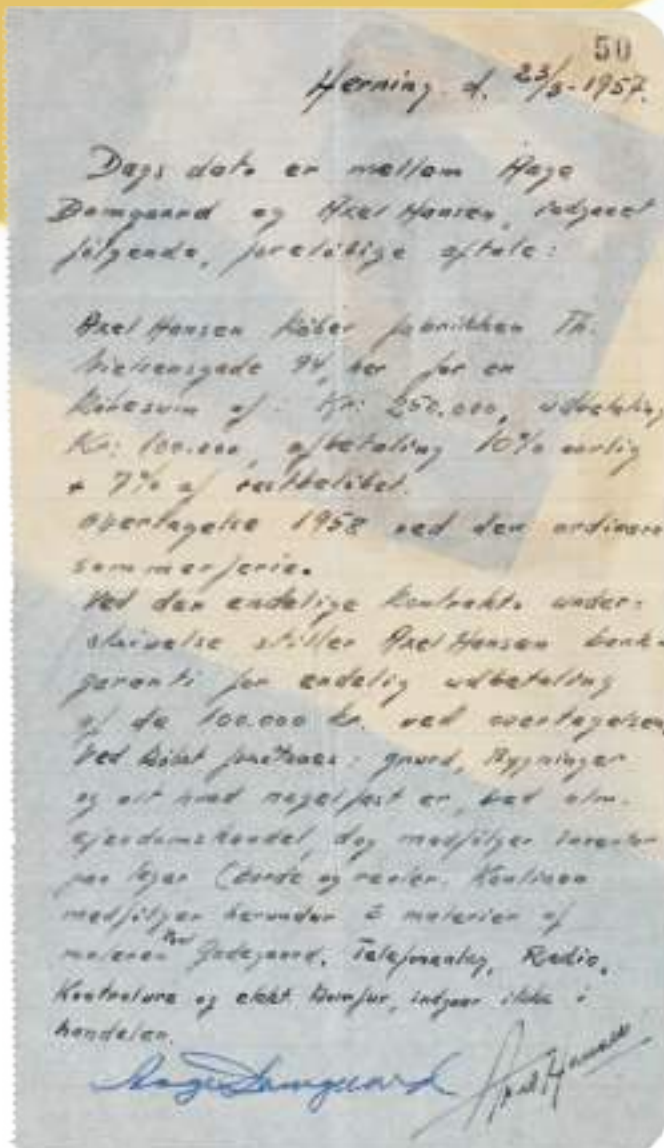 50
Herning d. 23/8-1957.
Dags dato er mellem Aage
Damgaard og Axel Hansen, indgaaet
følgende, foreløbige aftale:
Axel Hansen køber fabrikken Th.
Nielsensgade 94, her for en
købesum af: Kr: 250.000, udbetaling
Kr: 100.000, afbetaling 10% aarlig
+ 7% af restbeløbet.
overtagelse 1958 ved den ordinære
sommerferie.
Ved den endelige kontrakts under-
skrivelse stiller Axel Hansen bank-
garanti for endelig udbetaling
af de 100.000 kr. ved overtagelsen,
Ved købet : grund, Bygninger
og alt hvad nagelfast er, ved alm.
ejendomshandel, dog medfølger inventar
paa lager (borde og reoler. Kantinen
medfølger herunder malerier af
maleren Poul Gadegaard. Telefonanlæg, Radio,
Kontrolure og elekt. Komfur, indgaar ikke i
handelen.
Aage Damgaard Axel Hansen